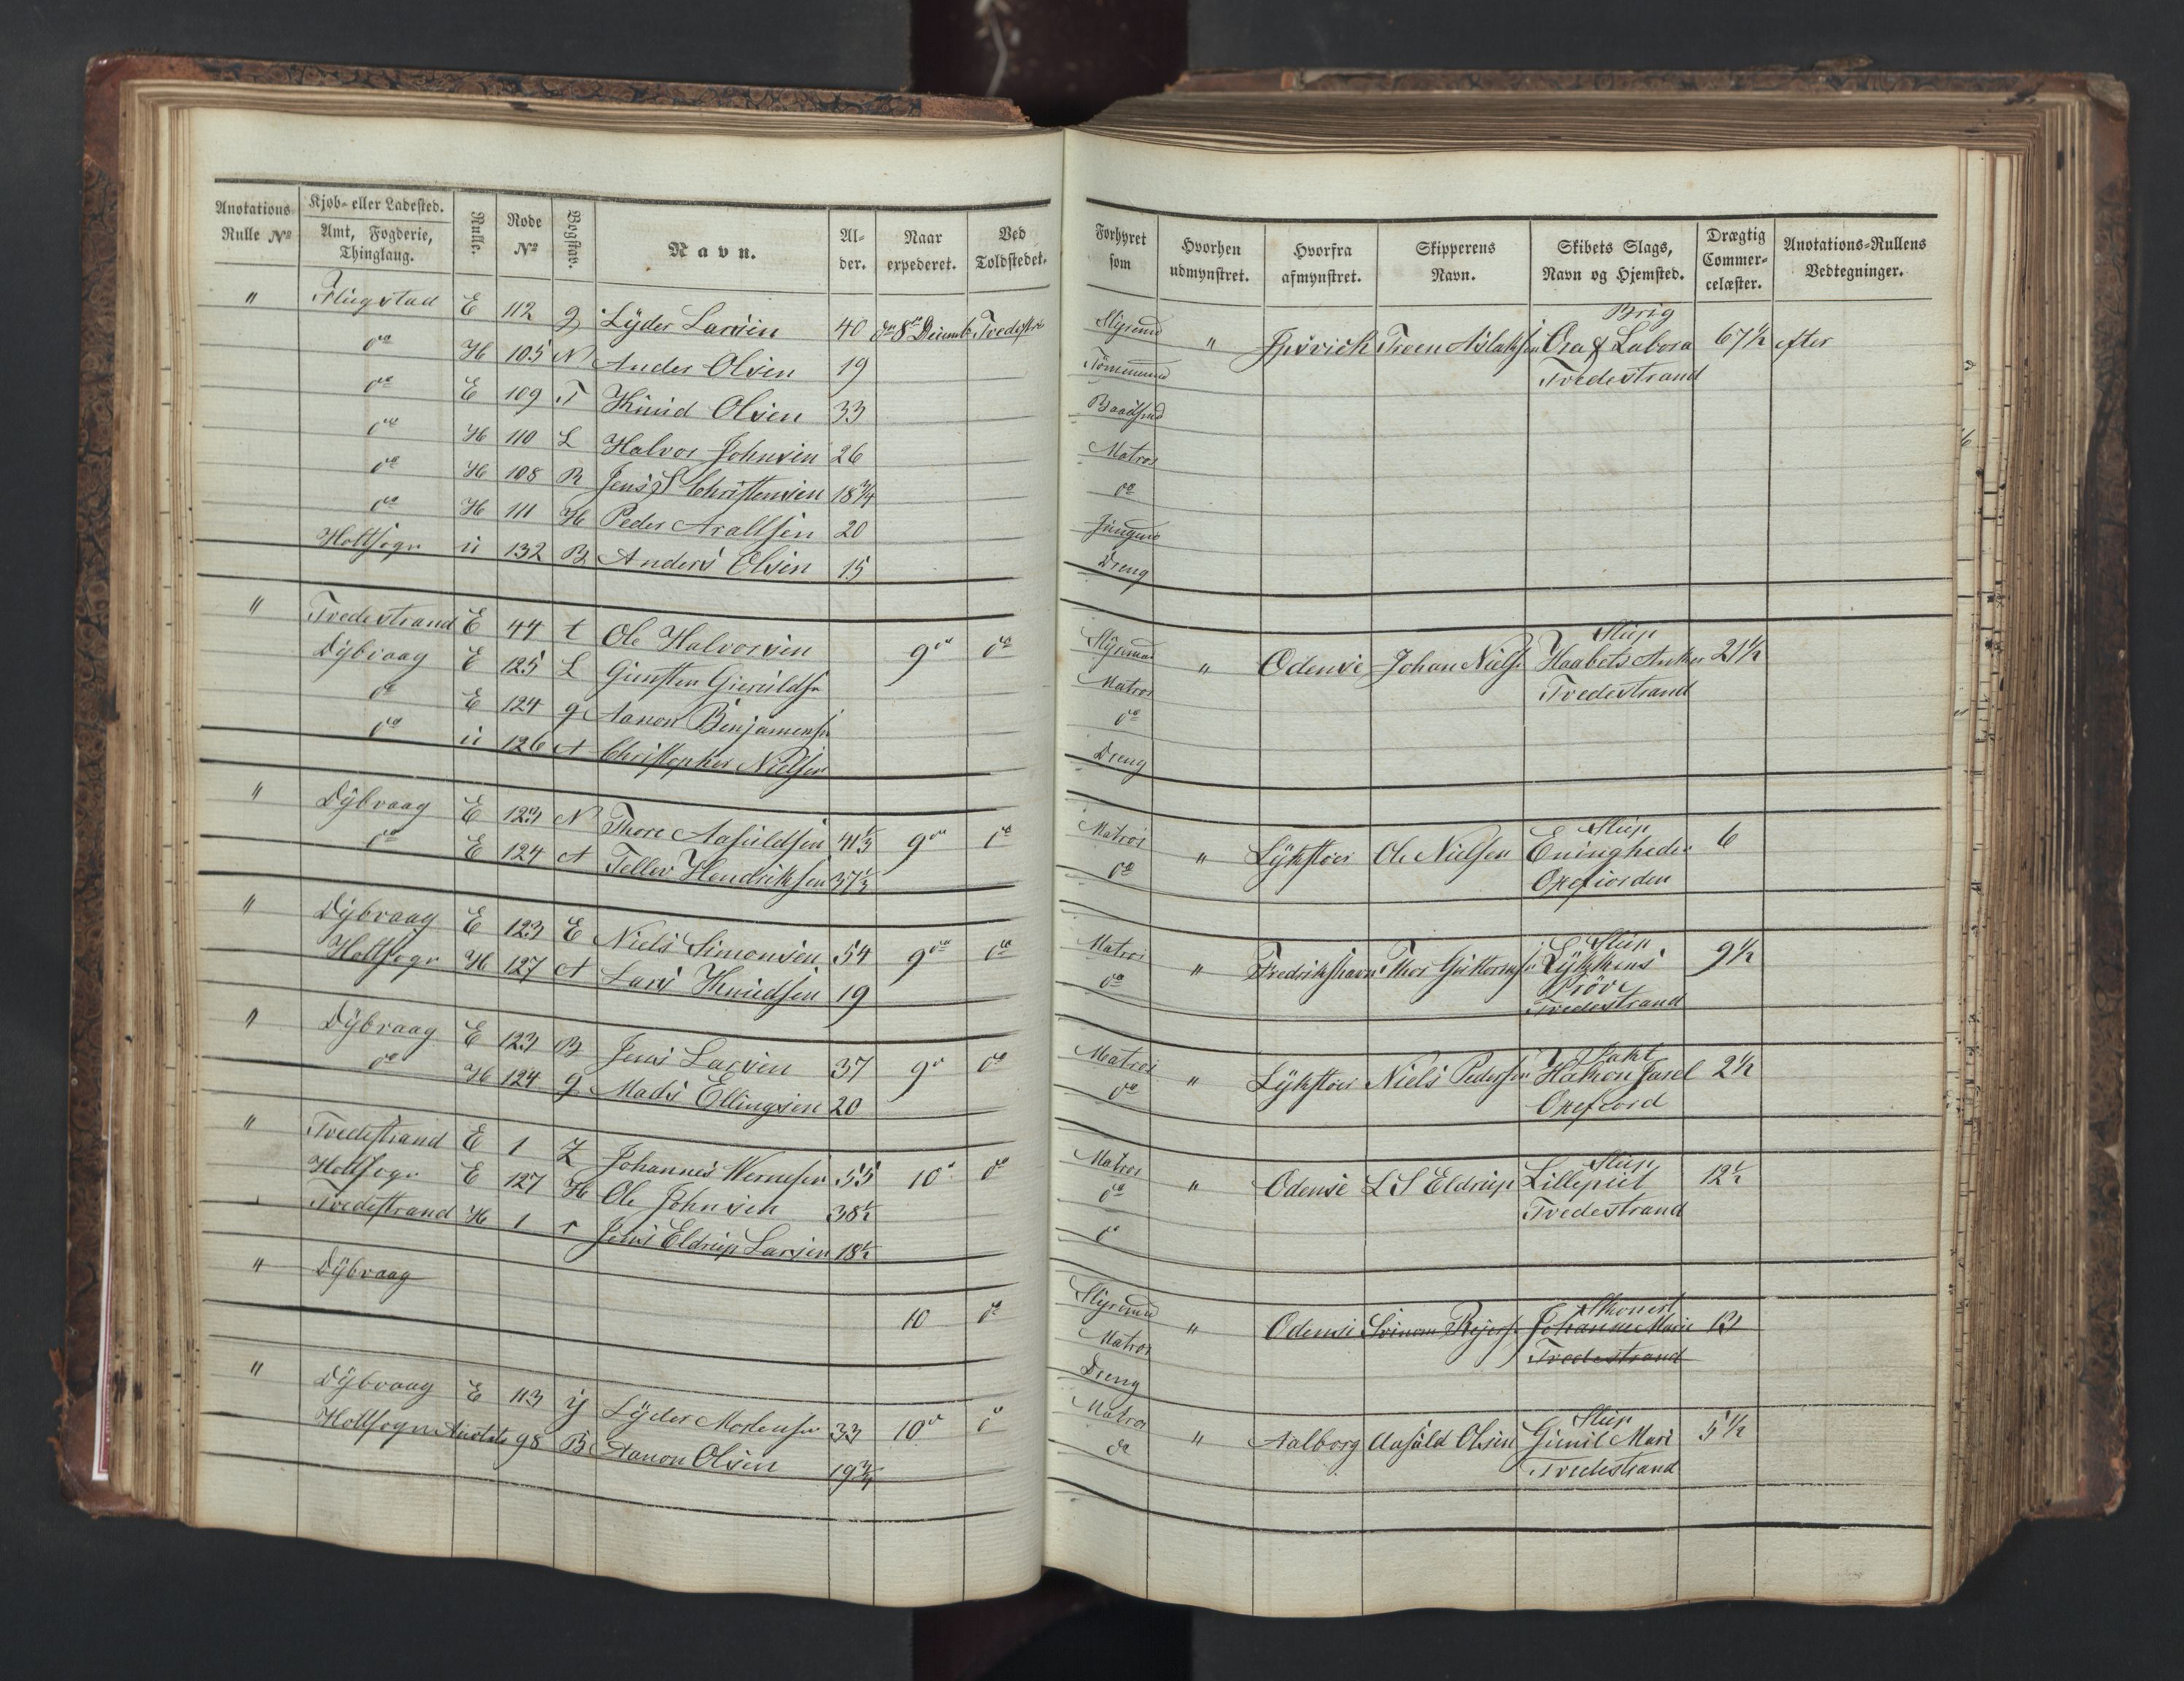 Anotations Rulle № | Kjøb- eller Ladested. Amt, Fogderie, Thinglaug. | Rulle. | Rode № | Bogstav. | Navn. | Alder. | Naar expederet. | Ved Toldstedet. | Forhyret som | Hvorhen udmynstret. | Hvorfra afmynstret. | Skipperens Navn. | Skibets Slags, Navn og Hjemsted. | Drægtig Commercelæster. | Anotations-Rullens Vedtegninger.
" | Flugstad | E | 112 | g | Lyder Larsen | 40 | dn 8de Decemb | Tvedestr | Styrmd | " | Ipsvich | Troen Aslaksen | Brig Ora & Labora Tvedestrand | 67½ | efter
do | H | 105 | N | Ander Olsen | 19 | Tømmermd
do | E | 109 | T | Knud Olsen | 33 | Baadsmd
do | H | 110 | L | Halvor Johnsen | 26 | Matros
do | H | 108 | R | Jens S Christensen | 18¾ | do
do | H | 111 | H | Peder Araltsen | 20 | Jungmd
Holtsogn | u | 132 | B | Anders Olsen | 15 | Dreng
" | Tvedestrand | E | 44 | t | Ole Halvorsen | 9de | do | Styrmand | " | Odense | Johan Niels | Slup Haabets Anker Tvedestrand | 21½
Dybvaag | E | 125 | L | Gunsten Gieruldsn | Matros
do | E | 124 | g | Aanon Benjamensn | do
do | u | 126 | A | Christopher Nielsen | Dreng
" | Dybvaag | E | 123 | N | Thore Aasuldsen | 41⅓ | 9de | do | Matros | " | Lykstøer | Ole Nielsen | Slup Eningheden Oxefiorden | 6
do | E | 124 | A | Tellev Hendriksen | 37⅓ | do
" | Dybvaag | E | 123 | E | Niels Simonsen | 54 | 9de | do | Matros | " | Fredrikshavn | Thor Guttormsn | Slup Lykkens Prøve Tvedestrand | 9½
Holtsogn | H | 127 | A | Lars Knudsen | 19 | do
" | Dybvaag | E | 123 | B | Jens Larsen | 37 | 9de | do | Matros | " | Lykstøer | Niels Pedersen | Jakt Hakon Jarel Oxefiord | 2½
do | H | 124 | g | Mads Ellingsen | 20 | do
" | Tvedestrand | E | 1 | Z | Johannes Wernesen | 55 | 10de | do | Matros | " | Odense | L S Eldrup | Slup Lillepiil Tvedestrand | 12½
Holtsogn | E | 127 | H | Ole Johnsen | 38½ | do
Tvedestrand | H | 1 | r | Jens Eldrup Larsen | 18½ | do
" | Dybvaag | 10 | do | Styrmd | " | Odense | Reiers | Skonert Johanne Marie Tvedestrand | 13
Matros
Dreng
" | Dybvaag | E | 113 | y | Lyder Mortensen | 33 | 10de | do | Matros | " | Aalborg | Aasuld Olsen | Slup Gimil Mari Tvedestrand | 5½
Holtsogn | 98 | B | Aanon Olsen | 19¾ | do